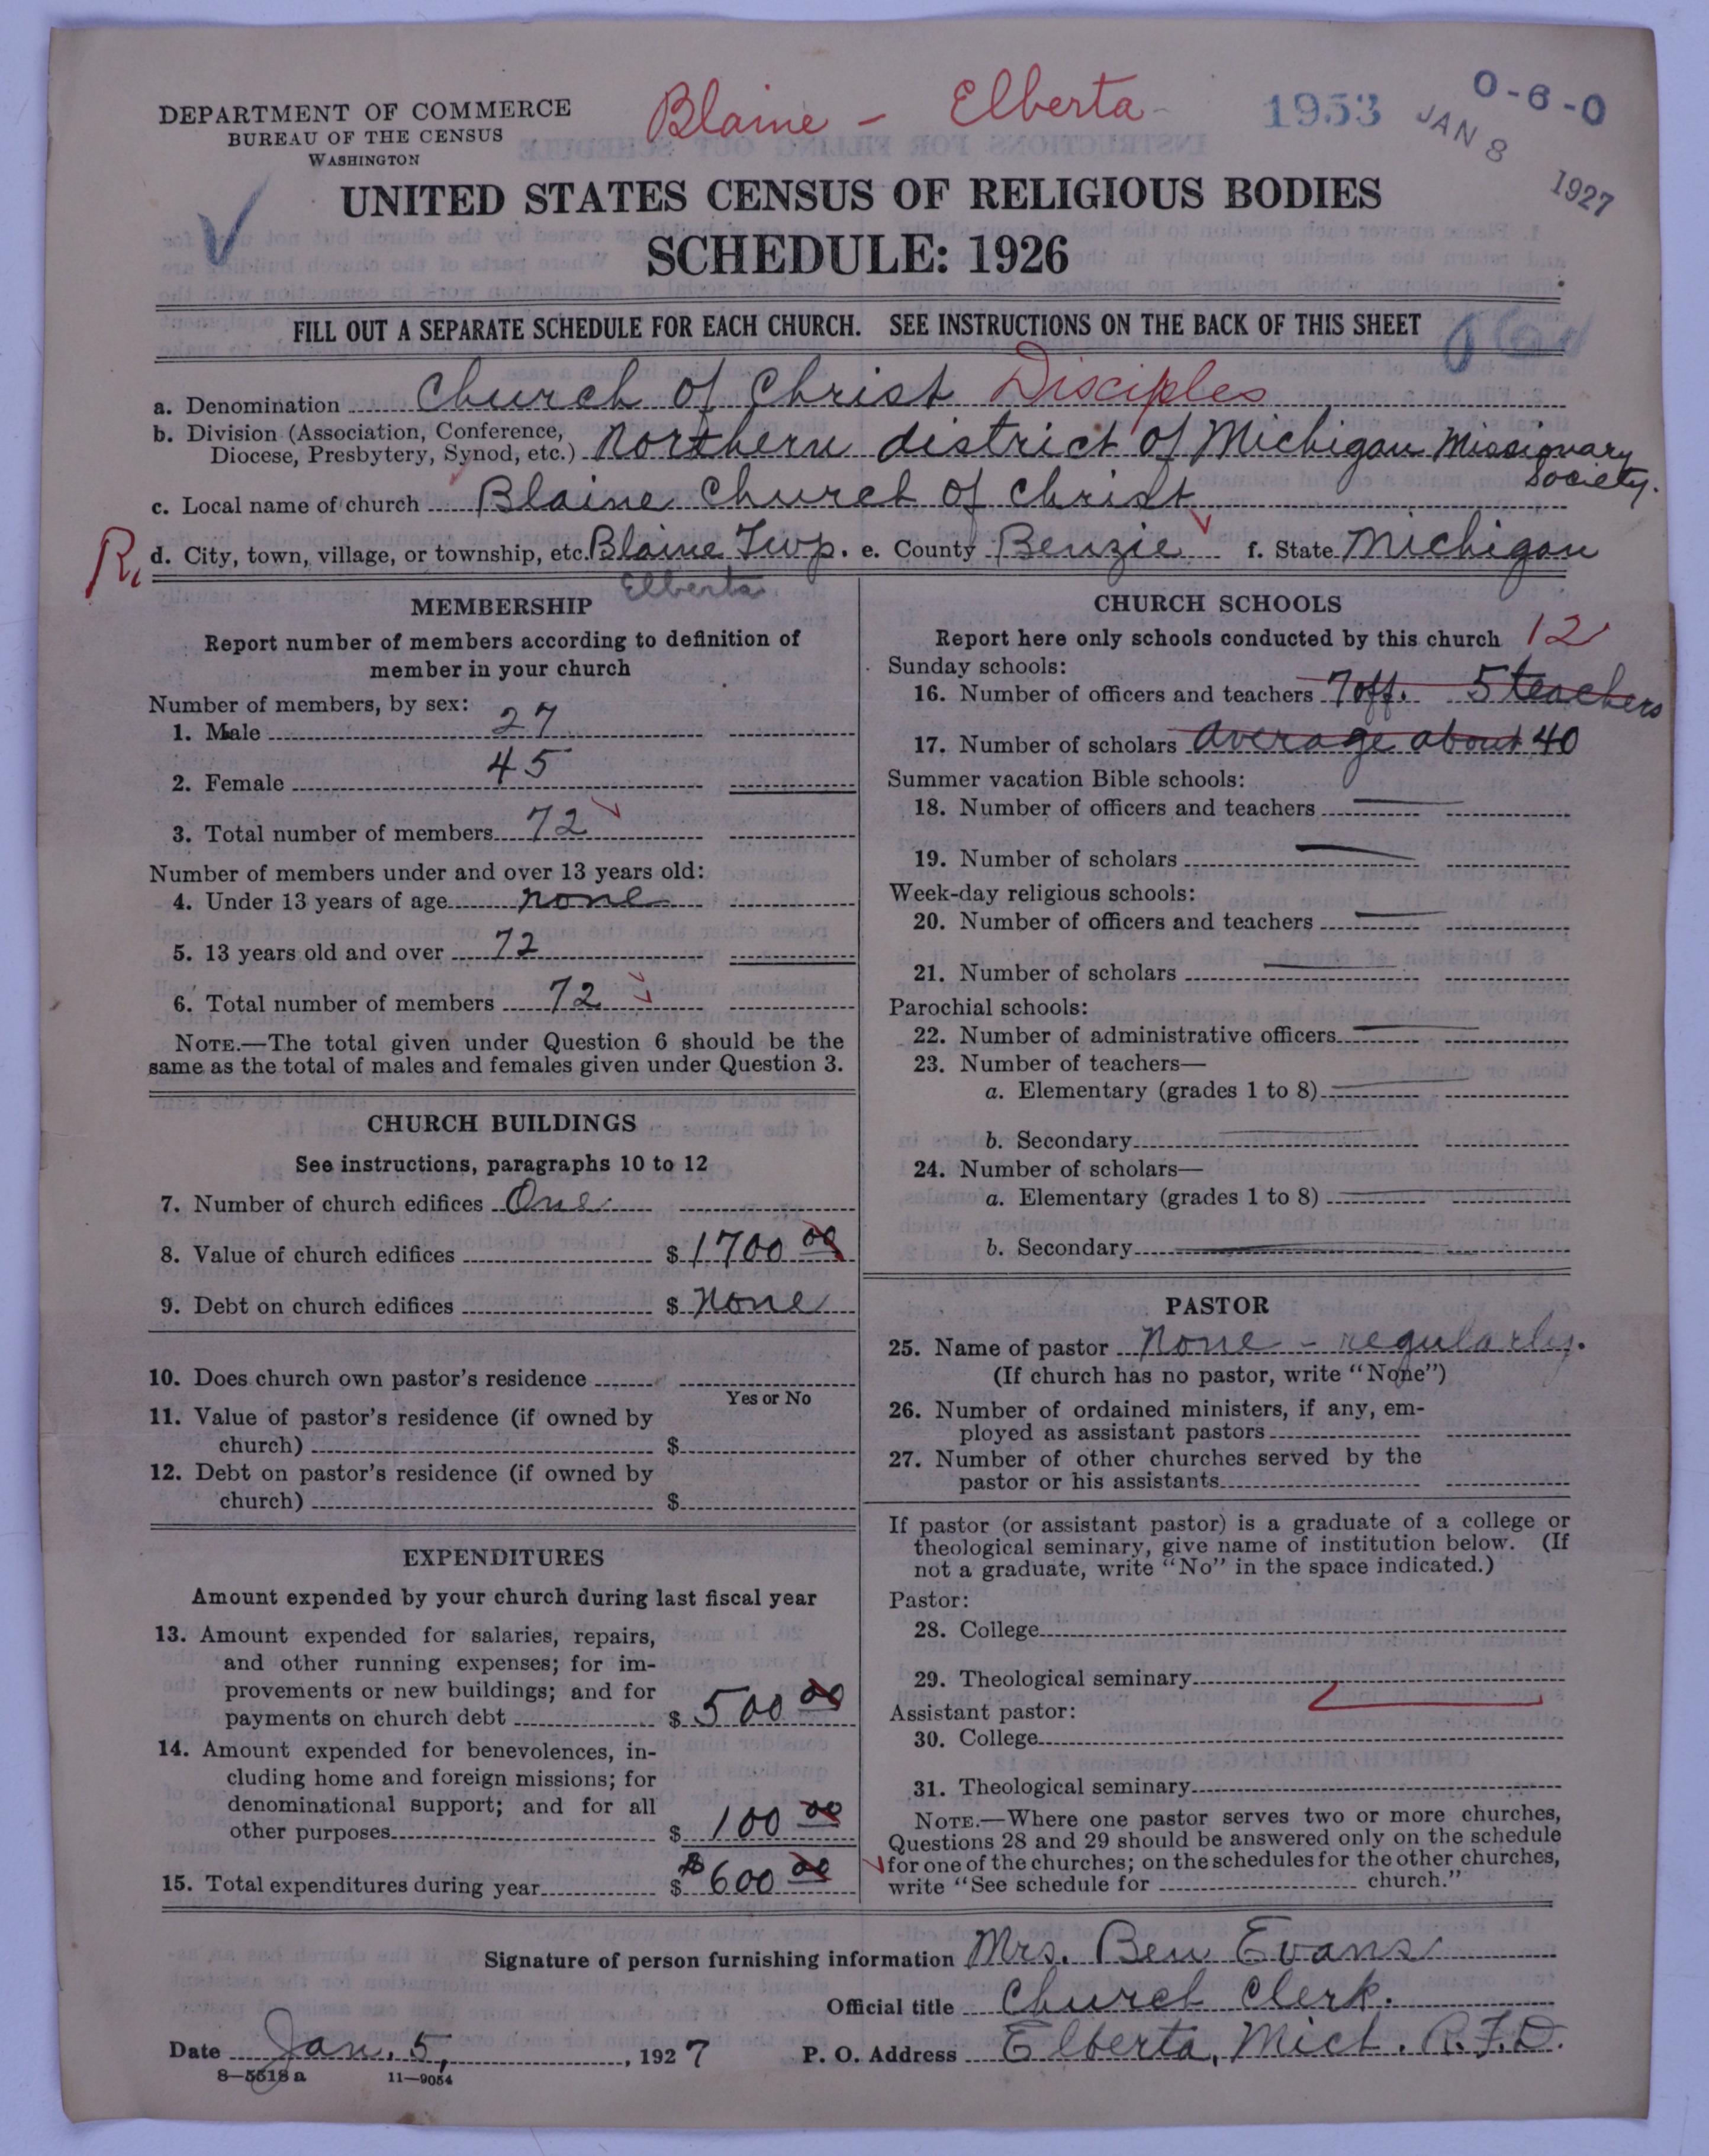 DEPARTMENT OF COMMERCE
BUREAU OF THE CENSUS
WASHINGTON
Blaine - Elberta
1953
0-6-0
JAN 8 1927
UNITED STATES CENSUS OF RELIGIOUS BODIES
SCHEDULE: 1926
FILL OUT A SEPARATE SCHEDULE FOR EACH CHURCH. SEE INSTRUCTIONS ON THE BACK OF THIS SHEET
a. Denomination Church of Christ Disciples
b. Division (Association, Conference,
Diocese, Presbytery, Synod, etc.) Northern district of Michigan Missionary
Society.
c. Local name of church Blaine Church of Christ
R. d. City, town, village, or township, etc. Blaine Twp. e. County Benzie f. State Michigan
Elberta
MEMBERSHIP
Report number of members according to definition of
member in your church
Number of members, by sex:
1. Male 27
2. Female 45
3. Total number of members 72
Number of members under and over 13 years old:
4. Under 13 years of age none
5. 13 years old and over 72
6. Total number of members 72
NOTE.—The total given under Question 6 should be the
same as the total of males and females given under Question 3.
CHURCH BUILDINGS
See instructions, paragraphs 10 to 12
7. Number of church edifices One
8. Value of church edifices $ 1700 00
9. Debt on church edifices $ None
10. Does church own pastor's residence
Yes or No
11. Value of pastor's residence (if owned by
church) $
12. Debt on pastor's residence (if owned by
church) $
EXPENDITURES
Amount expended by your church during last fiscal year
13. Amount expended for salaries, repairs,
and other running expenses; for im-
provements or new buildings; and for
payments on church debt $ 500 00
14. Amount expended for benevolences, in-
cluding home and foreign missions; for
denominational support; and for all
other purposes $ 100 00
15. Total expenditures during year $ $600 00
CHURCH SCHOOLS
Report here only schools conducted by this church 12
Sunday schools:
16. Number of officers and teachers 7 off. 5 teachers
17. Number of scholars average about 40
Summer vacation Bible schools:
18. Number of officers and teachers
19. Number of scholars
Week-day religious schools:
20. Number of officers and teachers
21. Number of scholars
Parochial schools:
22. Number of administrative officers
23. Number of teachers—
a. Elementary (grades 1 to 8)
b. Secondary
24. Number of scholars—
a. Elementary (grades 1 to 8)
b. Secondary
PASTOR
25. Name of pastor None - regularly.
(If church has no pastor, write "None")
26. Number of ordained ministers, if any, em-
ployed as assistant pastors
27. Number of other churches served by the
pastor or his assistants
If pastor (or assistant pastor) is a graduate of a college or
theological seminary, give name of institution below. (If
not a graduate, write "No" in the space indicated.)
Pastor:
28. College
29. Theological seminary
Assistant pastor:
30. College
31. Theological seminary
NOTE.—Where one pastor serves two or more churches,
Questions 28 and 29 should be answered only on the schedule
for one of the churches; on the schedules for the other churches,
write "See schedule for church."
Signature of person furnishing information Mrs. Ben Evans
Official title Church Clerk.
Date Jan. 5, 1927 P. O. Address Elberta, Mich. R.F.D.
8-5518 a 11-9054